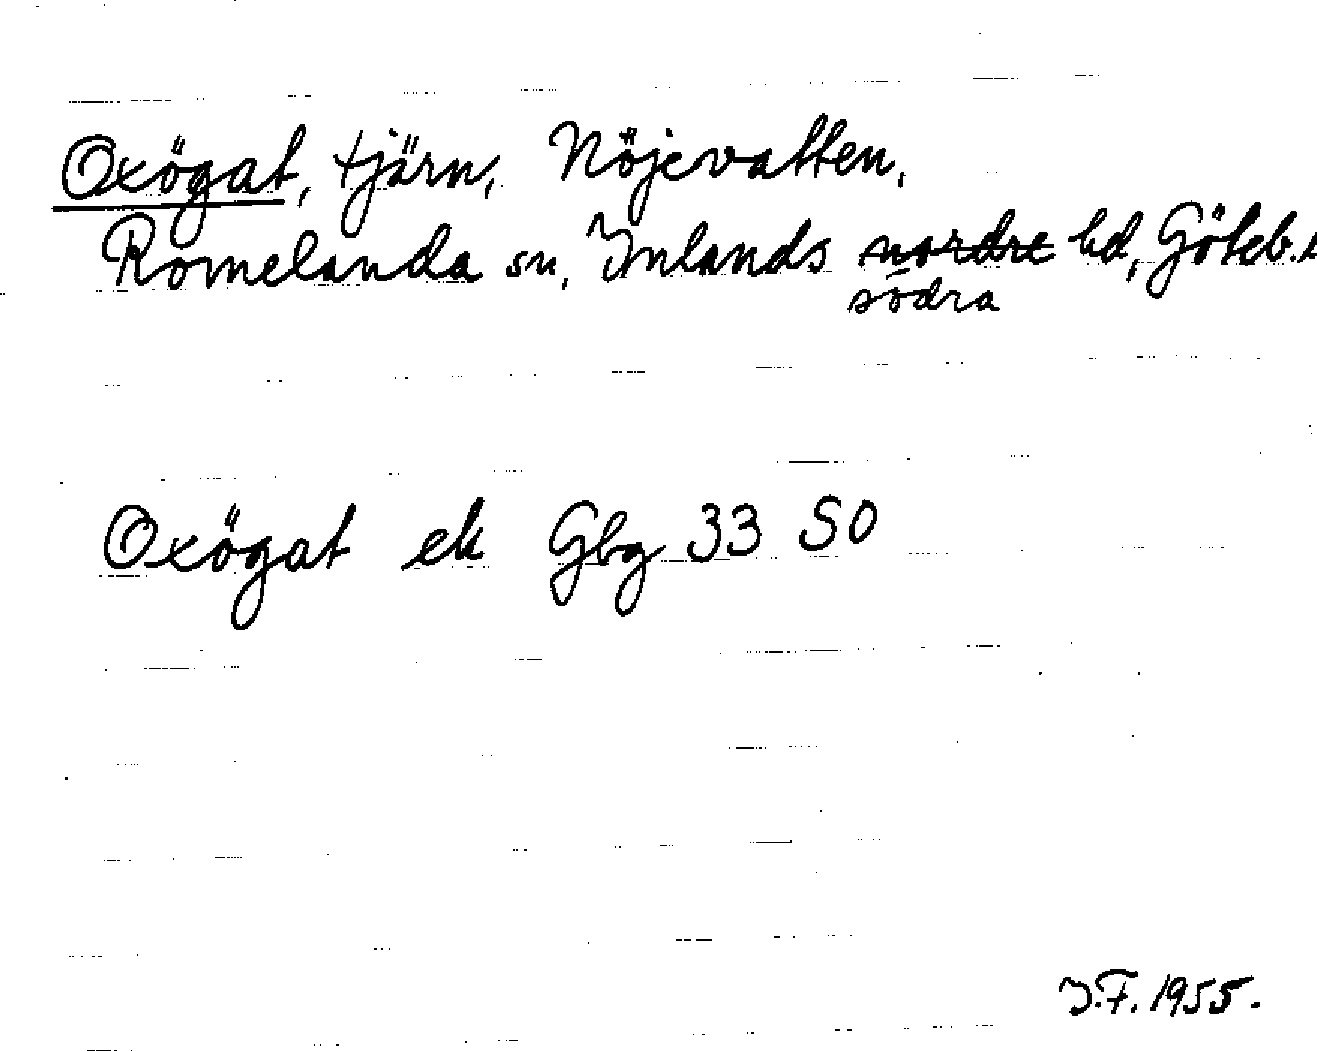 Oxögat, tjärn, Nöjevatten,
Romelanda sn, Inlands nordre hd, Göteb.
södra
Oxögat ek Gbg 33 SO
I.F. 1955.